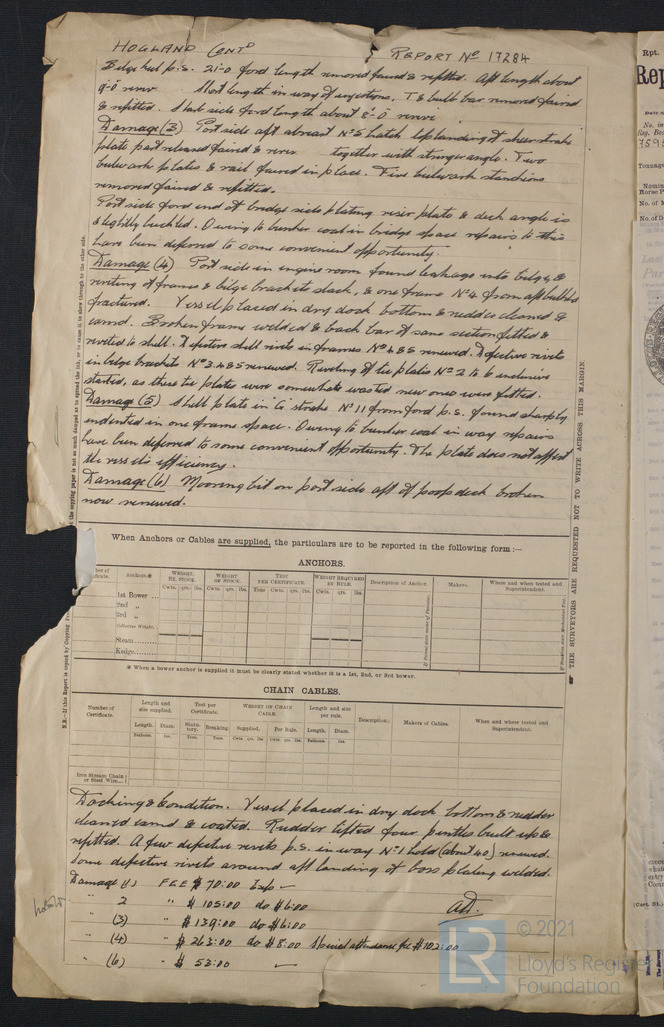 HOGLAND CONTD REPORT No 17284
Bilge keel p.s. 21-0 ford length removed faired & refitted. Aft length about
9-0 renew Short length in way of injections, T & bulb bar removed faired
& refitted. Starbd side ford length about 8-0 renew
Damage (3) Port side aft abreast No 5 hatch top landing of sheerstrake
plate part released faired & renew together with stringer angle. Two
bulwark plates & rail faired in place. Five bulwark stanchions
removed faired & refitted.
Port side ford end of bridge side plating riser plate & deck angle is
slightly buckled. Owing to bunker coal in bridge space repairs to this
have been deferred to some convenient opportunity.
Damage (4) Port side in engine room found leakage into bilge, &
riveting of frames & bilge brackets slack, & one frame No 4 from aft bulkhd
fractured. Vessel placed in dry dock bottom & rudder cleaned &
coated. Broken frame welded & back bar of same section fitted &
riveted to shell. Defective shell rivets in frames No 4 & 5 renewed. Defective rivets
in bilge brackets No 3.4 & 5 renewed. Riveting of tie plates No 2 to 6 inclusive
started, as these tie plates were somewhat wasted new ones were fitted.
Damage (5) Shell plate in G strake No 11 from ford p.s. found sharply
indented in one frame space. Owing to bunker coal in way repairs
have been deferred to some convenient opportunity. The plate does not affect
the vessels efficiency.
Damage (6) Mooring bit on port side aft of poop deck broken
now renewed.
When Anchors or Cables are supplied, the particulars are to be reported in the following form :—
ANCHORS.
Anchors.* WEIGHT, EX. STOCK. WEIGHT OF STOCK. TEST PER CERTIFICATE. WEIGHT REQUIRED BY RULE. Description of Anchor. Makers. Where and when tested and Superintendent.
Cwts. qrs. lbs. Cwts. qrs. lbs. Tons Cwts. qrs. lbs. Cwts. qrs. lbs.
1st Bower ...
2nd „
3rd „
Collective Weight.
Stream.........
Kedge.........
* When a bower anchor is supplied it must be clearly stated whether it is a 1st, 2nd, or 3rd bower.
CHAIN CABLES.
Number of Certificate. Length and size supplied. Test per Certificate. WEIGHT OF CHAIN CABLE. Length and size per rule. Description. Makers of Cables. When and where tested and Superintendent.
Length. Diam. Statutory. Breaking. Supplied. Per Rule. Length. Diam.
Fathoms. Ins. Tons. Tons. Cwts. qrs. lbs Cwts. qrs. lbs Fathoms. Ins.
Iron Stream Chain or Steel Wire...
Docking & Condition. Vessel placed in dry dock bottom & rudder
cleaned cand & coated. Rudder lifted four pintles built up &
refitted. A few defective rivets p.s. in way No 1 hold (about 40) renewed.
Some defective rivets around aft landing of boss plating welded.
Damage (1) FEE $ 70:00 Exp —
" 2 " $ 105:00 do $6:00
" (3) " $ 139:00 do $6:00
" (4) " $ 263:00 do $8:00 Special attendance fee $102:00
" (6) " $ 53:00 —
THE SURVEYORS ARE REQUESTED NOT TO WRITE ACROSS THIS MARGIN.
Rpt.
© 2021
LR
Lloyd's Register
Foundation